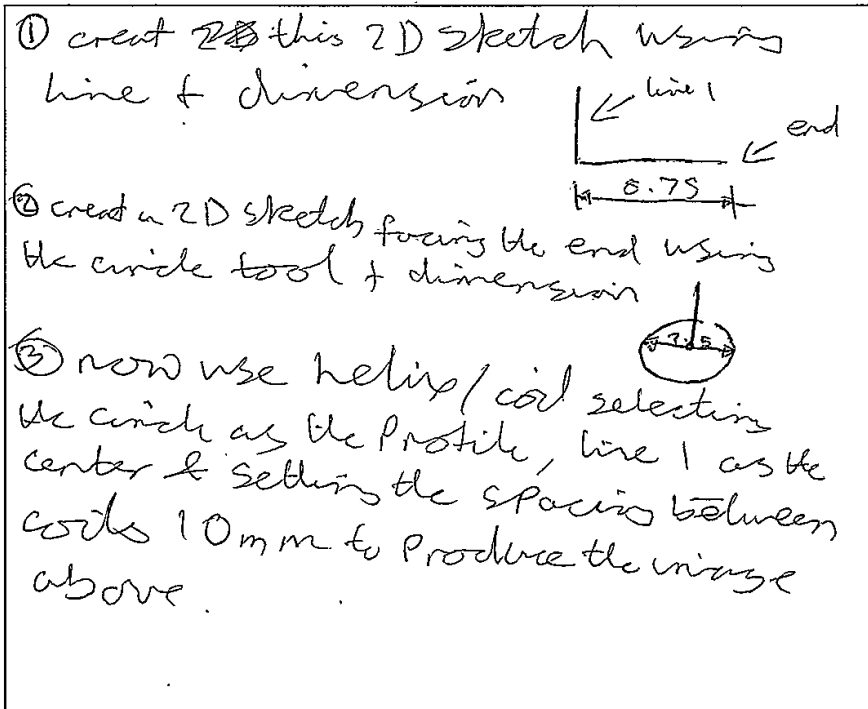 ① creat this 2D sketch using
line + dimension
line 1
end
8.75
② creat a 2D sketch facing the end using
the circle tool + dimension
③ now use helix/coil selecting
the circle as the Profile, line 1 as the
center & setting the spacing between
coils 10mm to Produce the image
above.